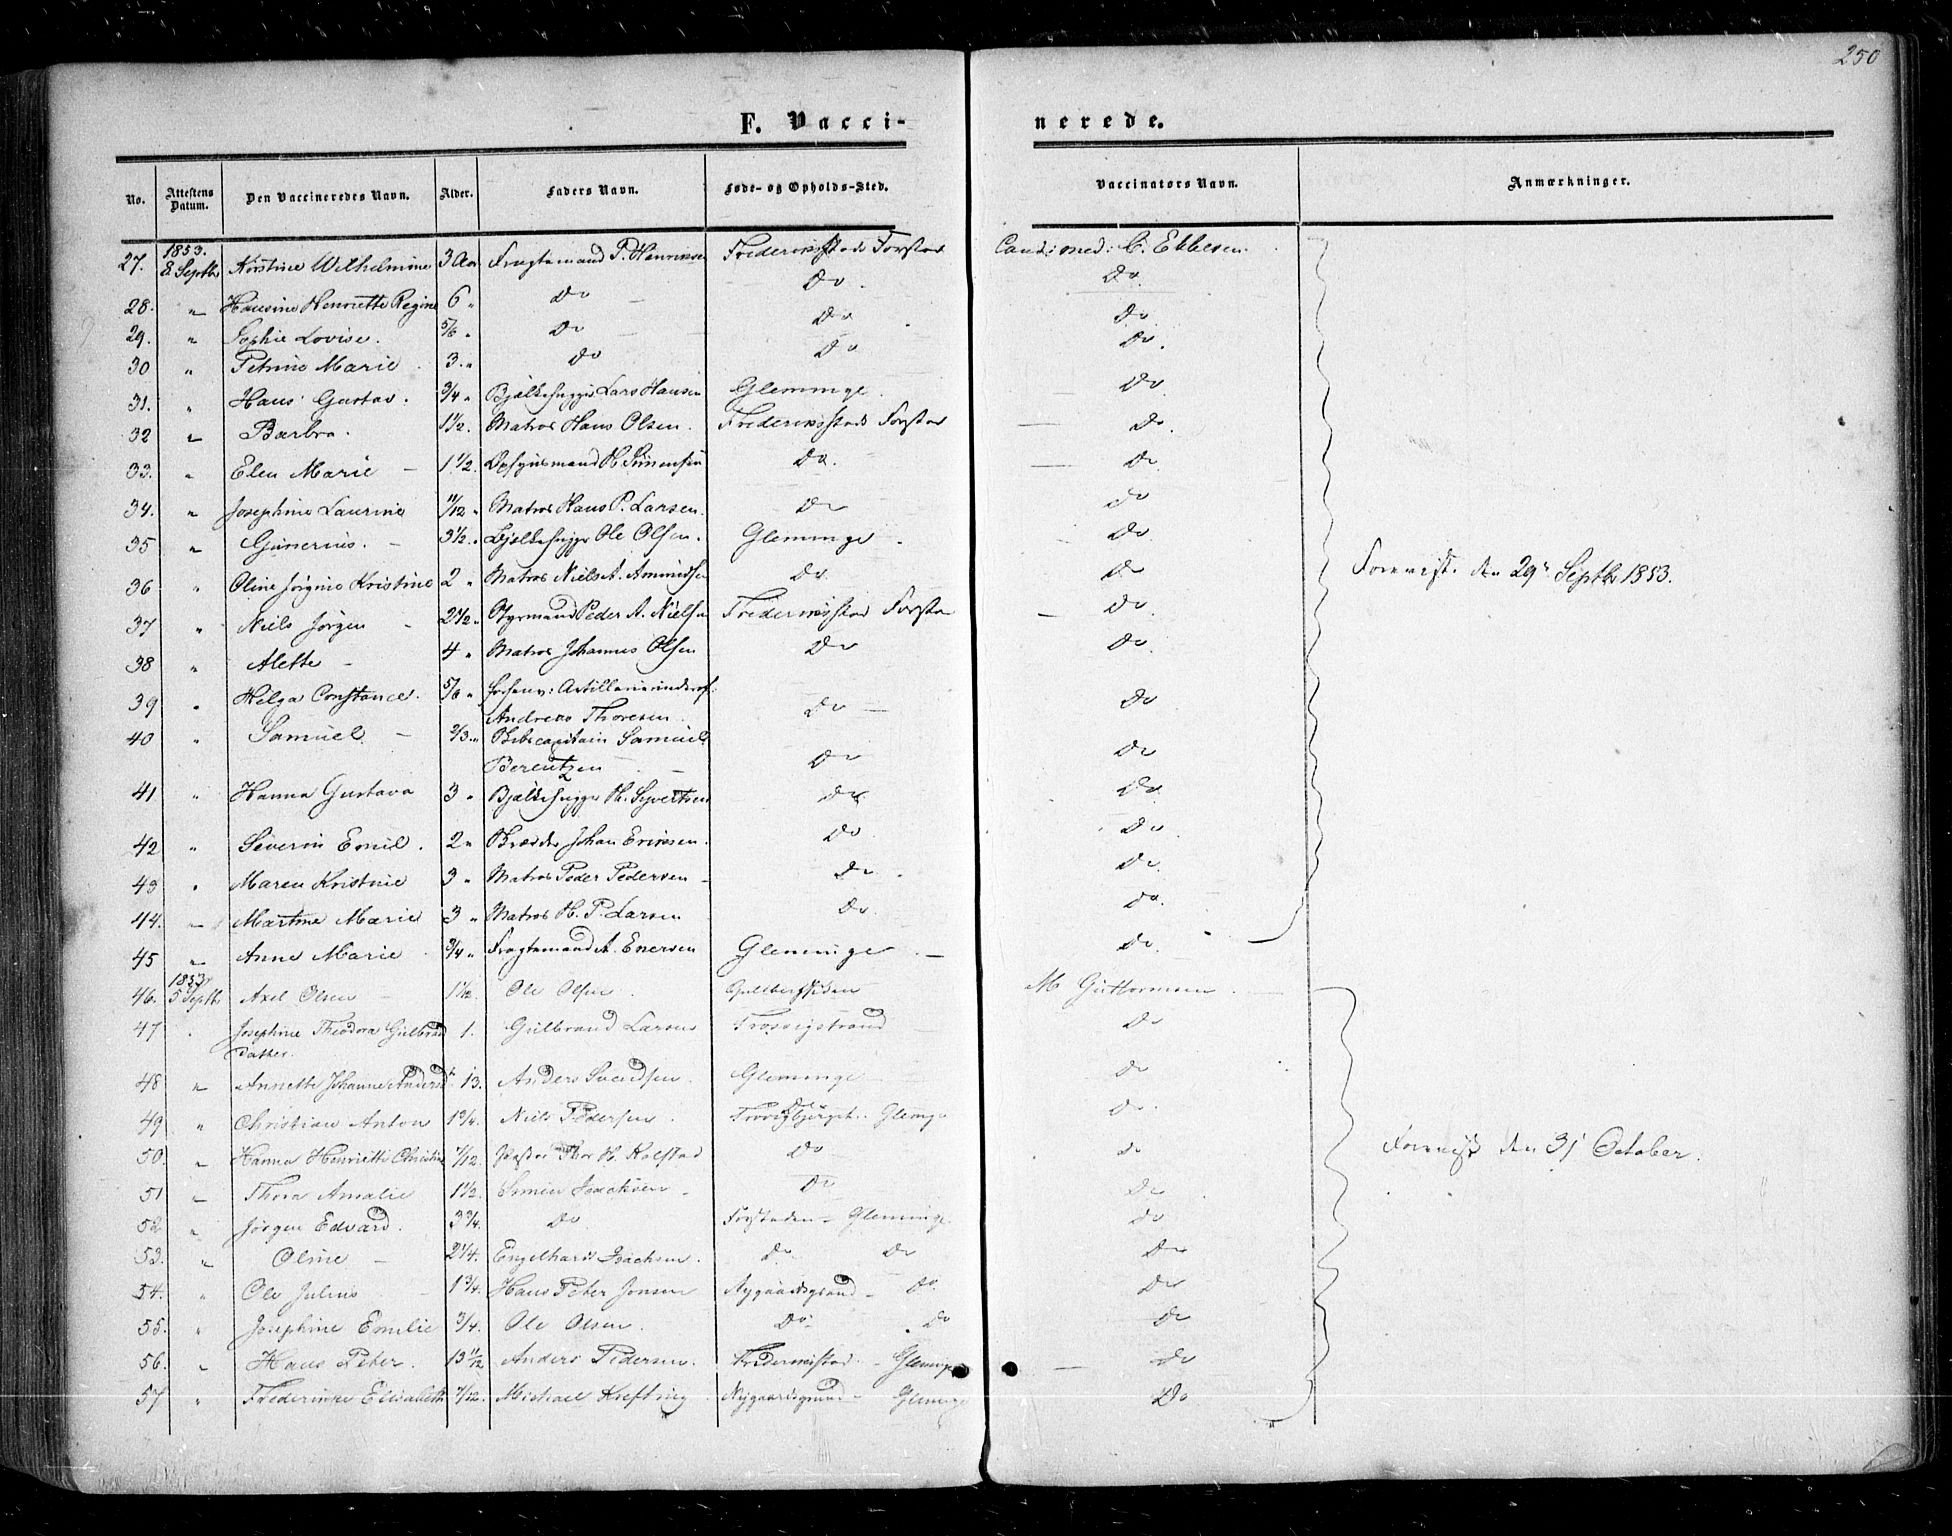 250
F. Vacci-
nerede.
No.
Attestens Datum.
Den Vaccineredes Navn.
Alder.
Faders Navn.
Føde- og Opholds-Sted.
Vaccinators Navn.
Anmærkninger.
1853.
27. 8. Septbr Kirstine Wilhelmine 3 Aar Fragtemand P. Henriksen Frederiksstads Forstad Cand: med: C. Ebbesen
28. " Hansine Henriette Regine 6 " Do Do. Do.
29. " Sophie Lovise. 5/6 " Do Do Do
30 " Petrine Marie 3. " Do Do Do.
31. " Hans Gustav. 3/4 " Bjælkehugger Lars Hansen Glemminge. Do
32 " Barbra. 1 1/2. Matros Hans Olsen. Frederiksstads Forstad Do.
33. " Elen Marie 1 1/2. H. Simensen Do. Do
34. " Josephine Laurine 11/12 " Matros Hans P. Larsen. Do Do
35 " Gunerius. 3 1/2. " Bjælkehugger Ole Olsen. Glemminge. Do.
36 " Oline Jørgine Kristine 2 " Matros Niels A. Amundsen Do. Do Forevist den 29de Septbr 1853.
37 " Niels Jørgen 2 1/2. " Styrmand Peder A. Nielsen Frederiksstad Forsta Do.
38 " Alette 4 " Matros Johannes Olsen Do Do.
39 " Helga Constance. 5/6 " Artilleriunderof:
Andreas Thoresen. Do Do
40 " Samuel. 2/3. " Skibscapitain Samuel
Berentzen Do Do
41 " Hanna Gustava 3 " Bjælkehugger H. Syvertsen Do Do.
42 " Severin Emil. 2 " Johan Eriksen. Do. Do.
43 " Maren Kristine 3 " Matros Peder Pedersen Do. Do.
44. " Martine Marie 3 " Matros H. P. Larsen Do. Do.
45 " Anne Marie. 3/4 " Fragtemand A. Enersen Glemminge Do.
1853
46. 5 Septbr Axel Olsen 1 1/2. Ole Olsen. M Guttormsen
47 " Josephine Theodora Gulbrand 1. Gulbrand Larsen Trosvigstrand Do
Datter.
48 " Annette Johanne Andersd 13. Anders Svendsen. Glemminge Do
49 " Christian Anton 1 3/4. Niels Pedersen. Glemge Do.
50. " Hanna Henriette Christine 7/12. Thor H. Kolstad Do Do
51 " Thora Amalie 1 1/2. Simen Isachsen Do Do
52 " Jørgen Edvard. 3 3/4. Do Forstaden - Glemminge. Do
53. " Oline 2 1/4. Engelhart Isachsen. Do Do Do
54. " Ole Julius 1 3/4. Hans Peter Jonsen Nygaardsgrund - Do. Do
55. " Josephine Emilie 3/4. Ole Olsen. Do. Do Do
56. " Hans Peter. 13 11/12 Anders Pedersen. Frederikstad - Glemge Do
57 " Frederikke Elisabeth 7/12. Michael Krefting Nygaardsgrund - Glemge Do
Forevist den 31 October.